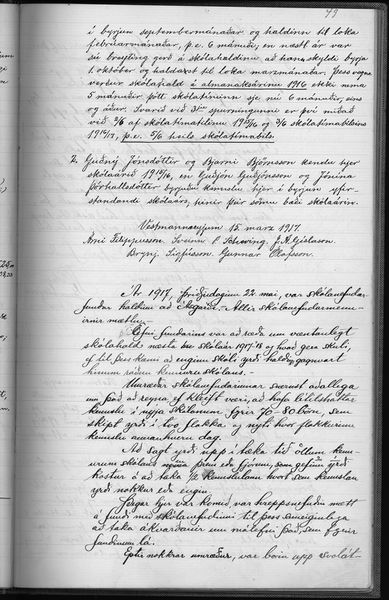 49
í byrjun septembermánaðar og haldinn til loka
febrúarmánaðar, þ.e. 6 mánuði, en næst ár var
sú breyting gerð á skólahaldinu að hann skyldi byrja
1. október og haldast til loka marzmánaðar. Þess vegna
verður skólahald á almanaksárinu 1916 ekki nema
5 mánuðir þótt skólatíminn sje nú 6 mánuðir, eins
og áður. Svarið við 3. spurningunni er því miðað
við skólatímabilsins
þ.e. heils skólatímabils.
2. Guðný Jónsdóttir og Bjarni Björnsson kendu hjer
skólaárið 1915/16, en Guðjón Guðjónsson og Jónína
Þórhallsdóttir byrjuðu kenslu hjer í byrjun yfir-
standandi skólaárs, þeirra þiður störnu
Vestmannaeyjum 15. marz 1917.
Árni Filippusson. Sveinn P. Scheving. J. A. Gíslason.
Brynj. Sigfússon Gunnar Ólafsson.
Ár 1917, þriðjudaginn 22. maí, var skólanefndar-
fundur haldinn að Ásgarði. Allir skólanefndarmenn-
irnir mættu.
Efni fundarins var að ræða um væntanlegt
skólahald næsta skólaár 1917-18 og hvað gera skuli,
ef til þess kæmi að enginn skóli yrði haldinn gagnvart
hinum ráðnu kennurum skólans.
Umræður skólanefndarinnar snerust aðallega
um það að reyna, ef kleyft væri, að hafa lítilsháttar
kenslu í nýja skólanum fyrir 70-80 börn, sem
skipt yrði í tvo flokka og nyti hvor flokkurinn
kenslu annanhvern dag.
Að sagt yrði upp í tæka tíð öllum kenn-
urum skólans nema þrem eða fjórum, sem gefinn yrði
kostur á að taka kenslulaun hvort sem kenslan
yrði nokkur eða engin.
Þegar hjer var komið var hreppsnefndin mætt
á fundi með skólanefndinni til þess sameiginlega
að taka ákvarðanir um málefni það, sem fyrir
fundinum lá.
Eptir nokkrar umræður, var borin upp svolát-